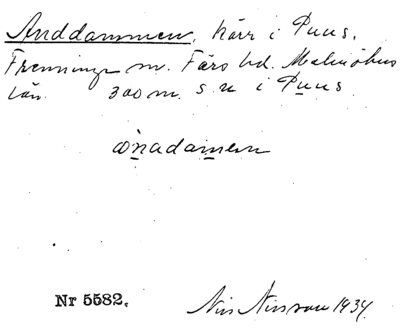 Anddammen, kärr i Puus,
Frenninge sn. Färs hd. Malmöhus
län. 300 m. s. u i Puus
ωnadamen
Nr 5582. Nils Nilsson 1934.